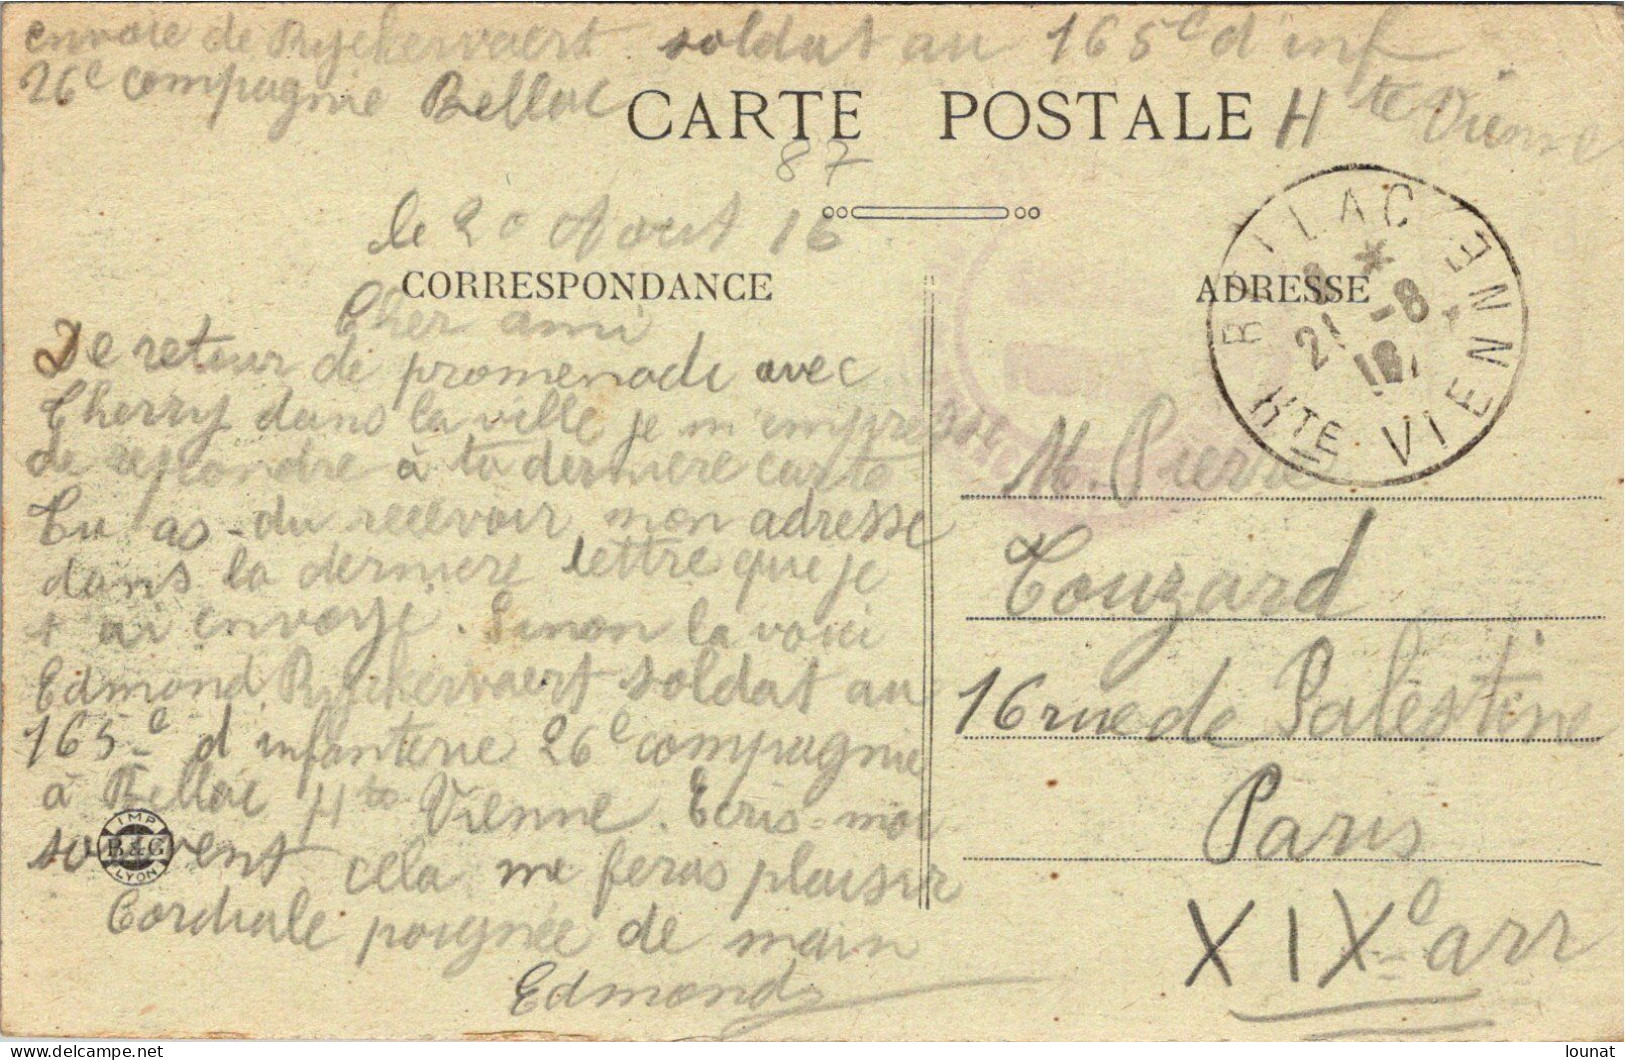 envoie de Ryckervaert soldat au 165e d'inf
26e compagnie Bellac Hte Vienne
CARTE POSTALE
87
le 20 Aout 16
CORRESPONDANCE
Cher ami
De retour de promenade avec
Cherry dans la ville je m'empresse
de repondre à ta derniere carte
Tu as du recevoir mon adresse
dans la derniere lettre que je
t'ai envoyé. Sinon la voici
Edmond Ryckervaert soldat au
165e d'infanterie 26e compagnie
à Bellac Hte Vienne. Ecris-moi
souvent cela me feras plaisir
Cordiale poignée de main
Edmond
IMP
B&G
LYON
ADRESSE
BELLAC
* 21 -8
HTE VIENNE
M. Pierre
Touzard
16 rue de Palestine
Paris
XIXe arr
lounat